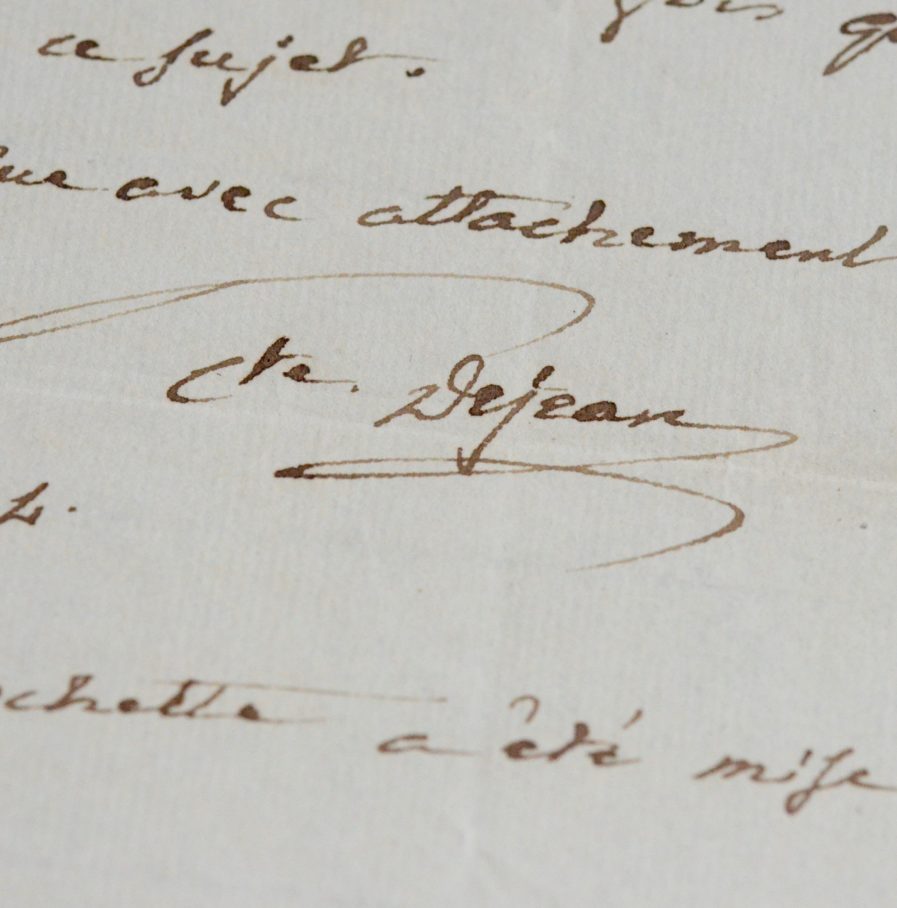 ce sujet.
avec attachement
Cte. Dejean
a été mise